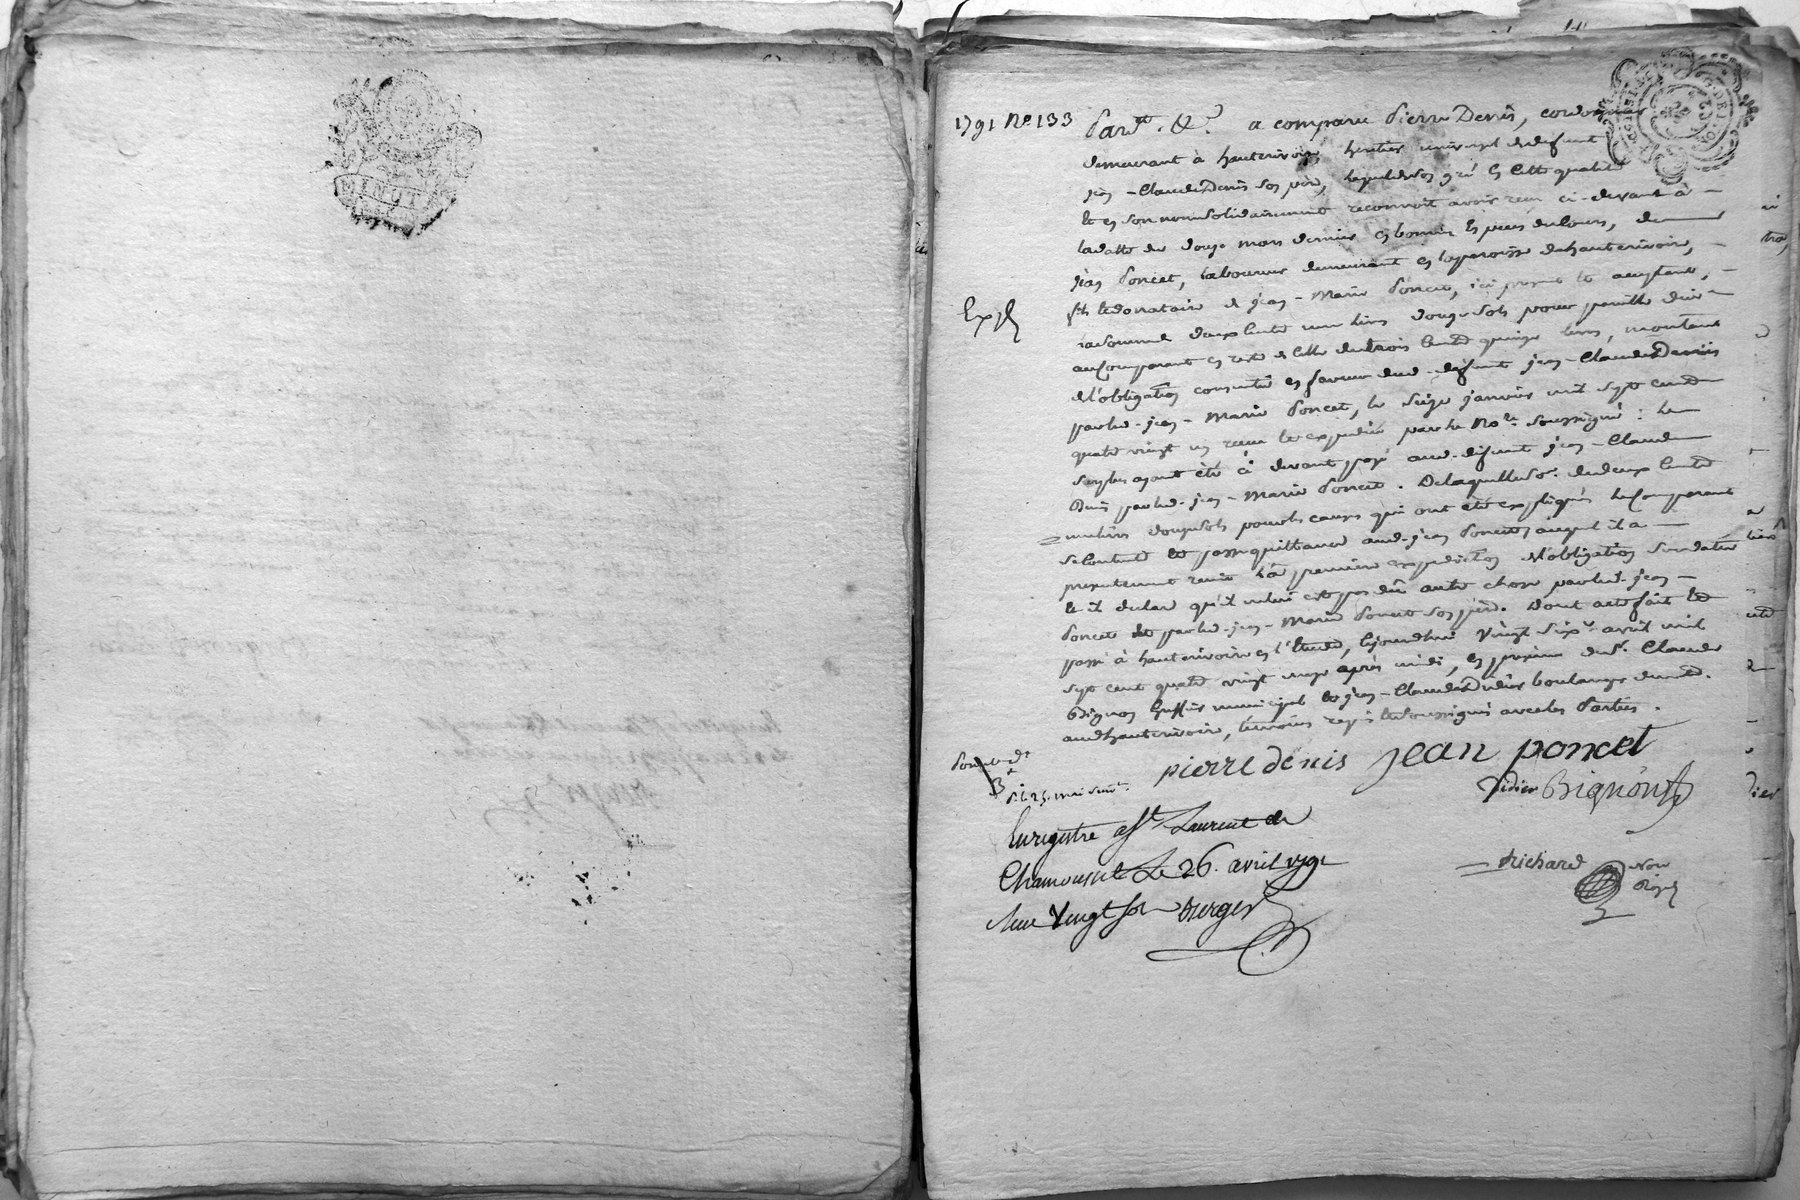 MINOT
1791 No 133
Pardt. &a. a comparu Pierre Denis, cordonnier
demeurant à hauterivoire, heritier universel de defunt
jean-Claude Denis son père, lequel de son gré en cette qualité
et en son nom solidairement reconnoit avoir reçu ci-devant à
la datte du douze mars dernier en bonnes espèces de cours, de
jean Poncet, laboureur demeurant en la paroisse de hauterivoire,
fils et donataire de jean-Marie Poncet, ici present et acceptant,
Expé
la somme de deux cents une livres douze sols pour pareille due
au comparant en reste de celle de trois cents quinze livres, montant
de l'obligation consentie en faveur dud. defunt jean-Claude Denis
par led. jean-Marie Poncet, le seize janvier mil sept cent
quatre vingt un reçue et expediée par le Nore. soussigné : le
surplus ayant été ci devant payé aud. defunt jean-Claude
Denis par led. jean-Marie Poncet. De laquelle so. de deux cents
une livres douze sols pour les causes qui ont été expliquées le comparant
se contente et passe quittance aud. jean Poncet, auquel il a
presentement remis la premiere expedition de l'obligation sus datée
et il declare qu'il ne lui est pas dû autre chose par led. jean
Poncet et par led. jean-Marie Poncet son père. Dont acte fait et
passé à hauterivoire en l'Etude, cejourdhui vingt six avril mil
sept cent quatre vingt onze après midi, en presence de sr. Claude
Brignon officier municipal et jean-Claude Didier boulanger demt.
aud. hauterivoire, temoins requis et soussignés avec les Parties.
pierre denis jean poncet
Didier Brignon
25 mai
Enregistré à St. Laurent de
Chamousset Le 26. avril 1791
Reçu Vingt sols Berger
Richard
Nore